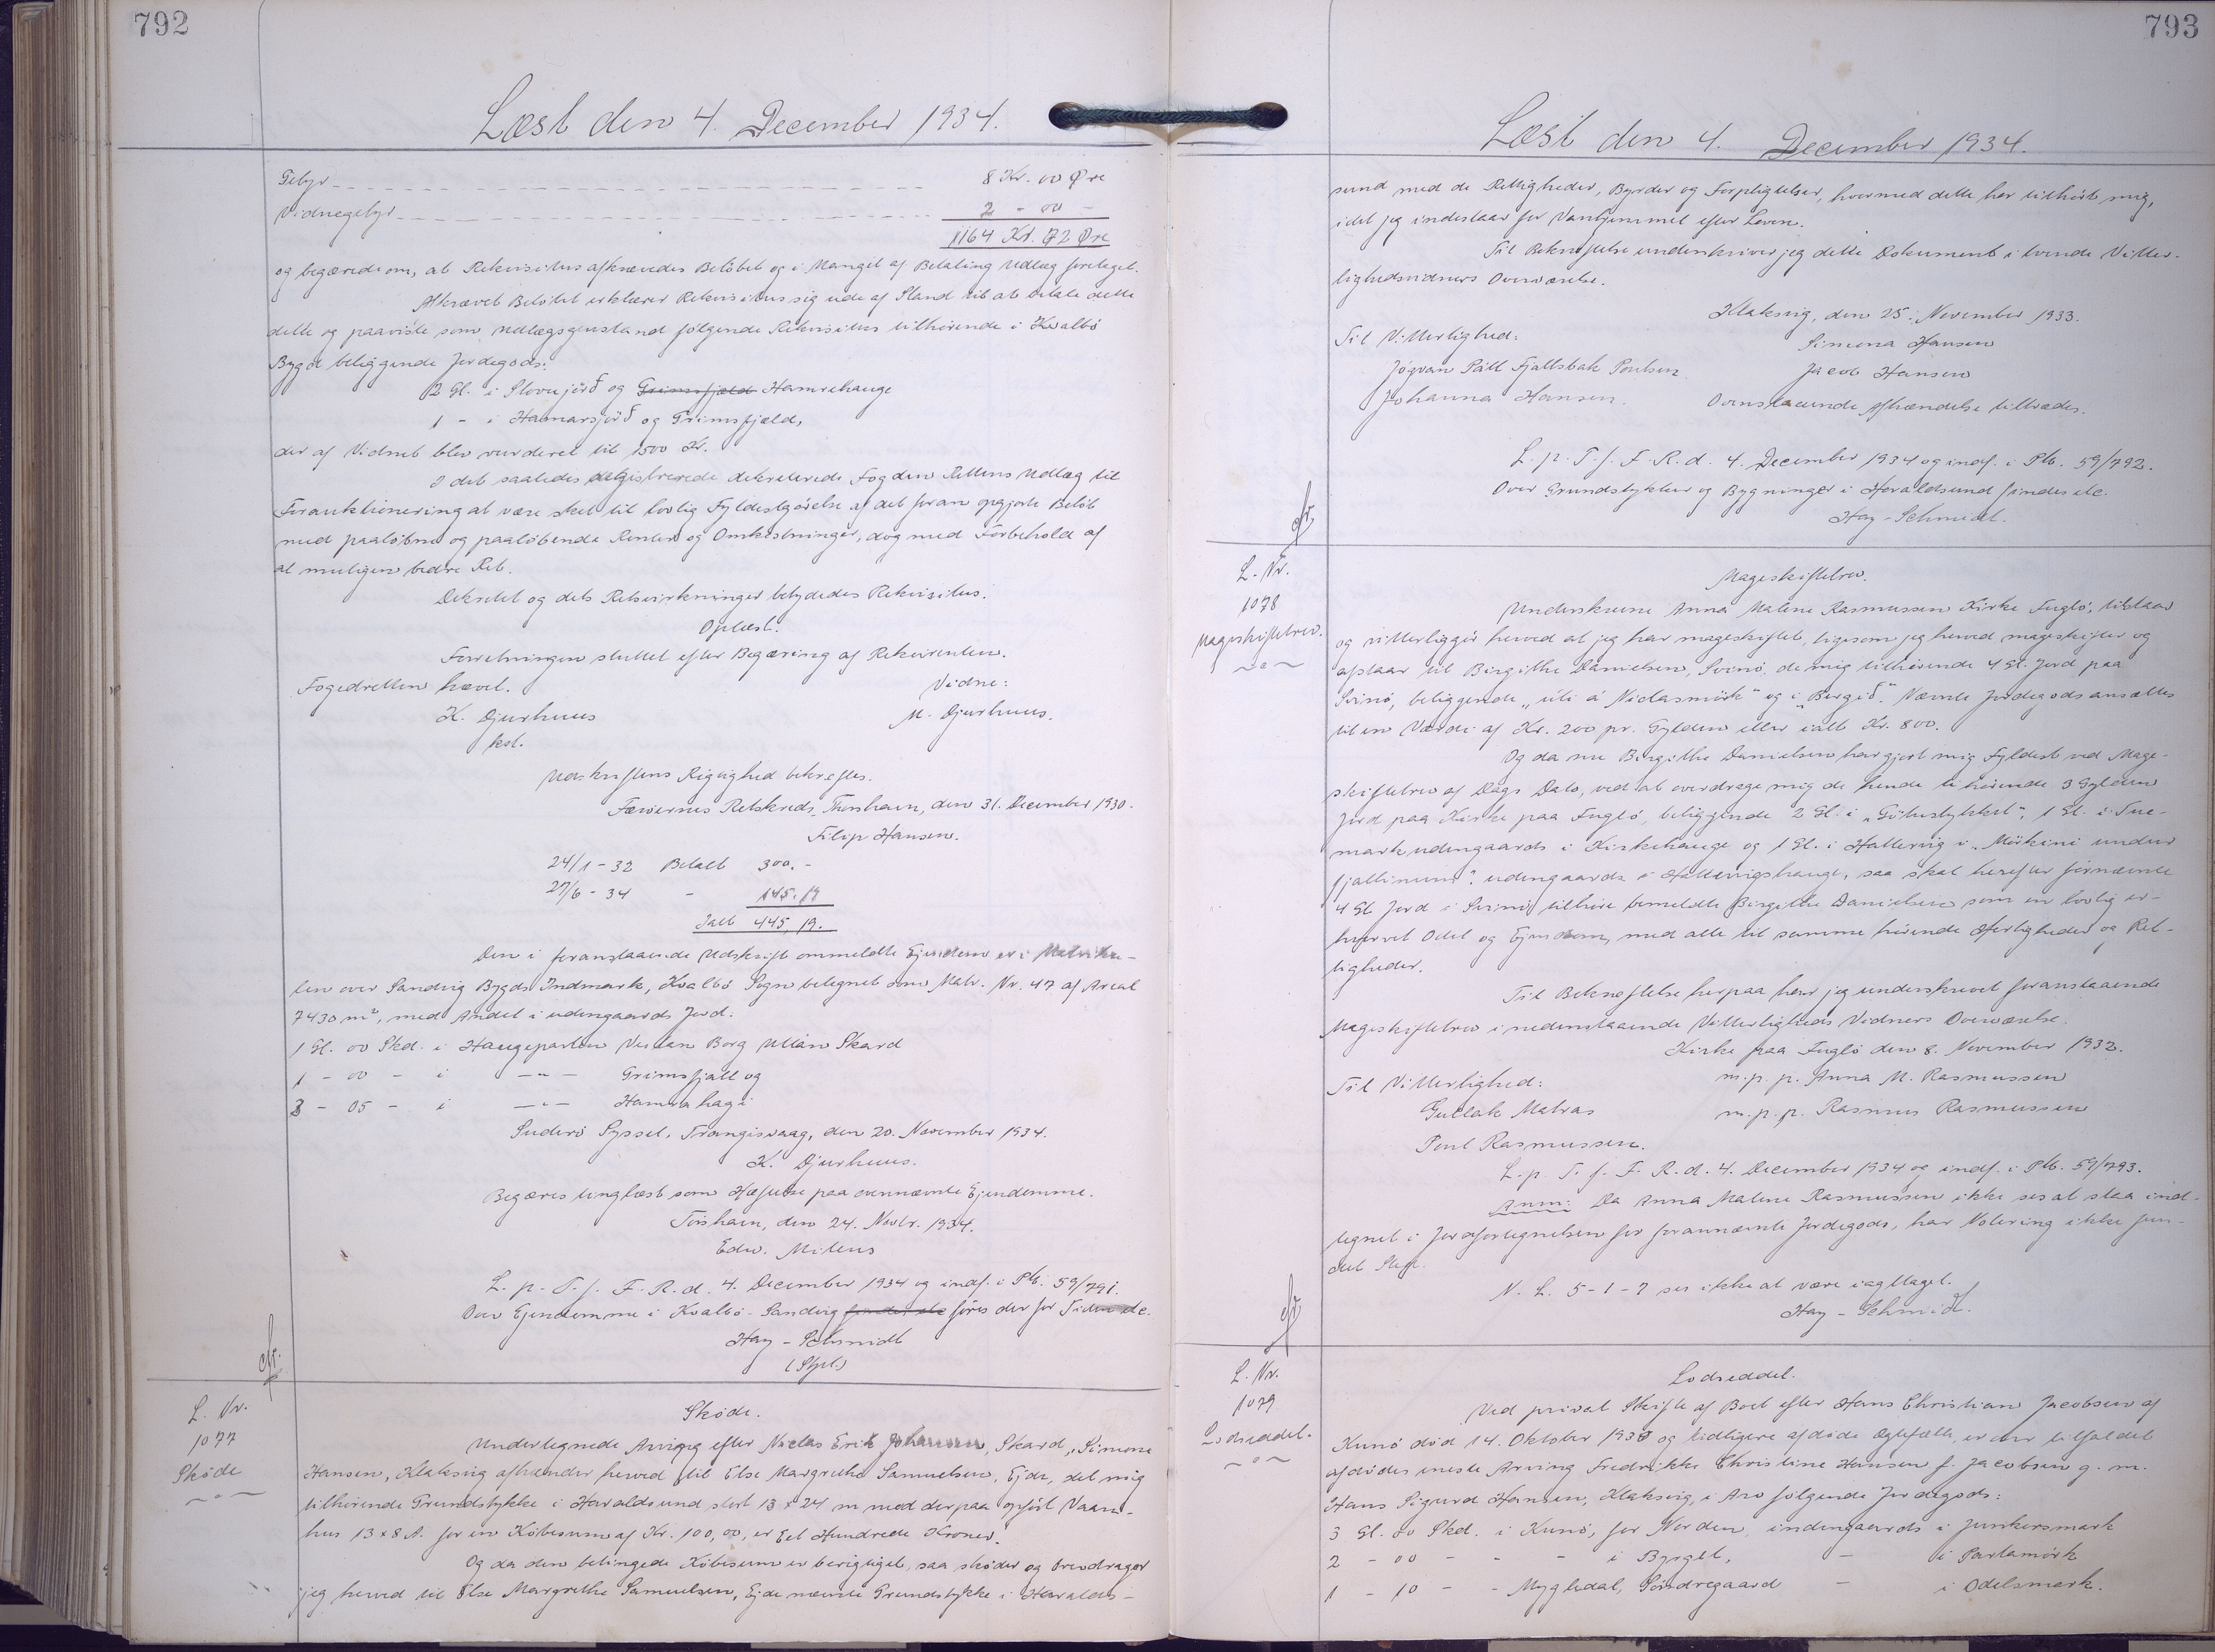 792
Læst den 4. December 1934.
Gebyr 8 Kr. 00 Øre
Vidnegebyr 2 - 00 -
1164 Kr. 72 Øre
og begærede om, at Rekvisitus afkrævedes Beløbet og i Mangel af Betaling Udlæg foretaget.
Afkrævet Beløbet erklærer Rekvisitus sig ude af Stand til at betale dette
dette og paaviste som Udlægsgenstand følgende Rekvisitus tilhørende i Kvalbø
Bygd beliggende Jordegods:
2 Gl. i Stovujørð og Grimsfjæld Hamrehauge
1 - i Hamarsjörð og Grimsfjæld,
der af Vidnet blev vurderet til 1500 Kr.
I det saaledes registrerede dekreterede Fogden Rettens Udlæg til
Forauktionering at være sket til lovlig Fyldestgørelse af det foran opgjorte Beløb
med paaløbne og paaløbende Renter og Omkostninger, dog med Forbehold af
al muligen bedre Ret.
Dekretet og dets Retsvirkninger betydedes Rekvisitus.
Oplæst.
Forretningen sluttet efter Begæring af Rekvirenten.
Fogedretten hævet.
Vidne:
K. Djurhuus
M. Djurhuus.
kst.
Udskriftens Rigtighed bekræftes.
Færøernes Retskreds, Thorshavn, den 31. December 1930.
Filip Hansen.
24/1 - 32 Betalt 300.-
27/6 - 34 - 145.19
Ialt 445,19.
Den i foranstaaende Udskrift ommeldte Ejendom er i Matriku-
len over Sandvig Bygds Indmark, Kvalbø Sogn betegnet som Matr. Nr. 47 af Areal
7430 m², med Andel i udengaards Jord:
1 Gl. 00 Skd. i Haugeparten Vestan Borg Uttan Skard
1 - 00 - i -"- Grimsfjall og
3 - 05 - i -"- Hamra hagi
Suderø Syssel, Trangisvaag, den 20. November 1934.
K. Djurhuus.
Begæres tinglæst som Hæftelse paa ovennævnte Ejendomme.
Tórshavn, den 24. Novbr. 1934.
Edw. Mitens
L. p. T. f. F. R. d. 4. December 1934 og indf. i Pb. 59/791.
Over Ejendomme i Kvalbø-Sandvig findes ele føres der for Tiden ele.
Hay-Schmidt
(Stpl.)
L. Nr.
1077
Skøde
Skøde.
Undertegnede Arving efter Niclas Erik Johansen, Skard, Simona
Hansen, Klaksvig afhænder herved til Else Margrethe Samuelsen, Ejde, det mig
tilhørende Grundstykke i Haraldsund stort 13 x 24 m med derpaa opført Vaan-
hus 13 x 8 A. for en Købesum af Kr. 100,00, er Eet Hundrede Kroner.
Og da den betingede Købesum er berigtiget, saa skøder og overdrager
jeg herved til Else Margrethe Samuelsen, Ejde nævnte Grundstykke i Haralds-
793
Læst den 4. December 1934.
sund med de Rettigheder, Byrder og Forpligtelser, hvormed dette har tilhørt mig,
idet jeg indestaar for Vanhjemmel efter Loven.
Til Bekræftelse underskriver jeg dette Dokument i tvende Vitter-
lighedsvidners Overværelse.
Klaksvig, den 25. November 1933.
Til Vitterlighed:
Simona Hansen
Jógvan Páll Fjallsbak Poulsen
Jacob Hansen
Johanna Hansen.
Ovenstaaende Afhændelse tiltrædes.
L. p. T. f. F. R. d. 4. December 1934 og indf. i Pb. 59/792.
Over Grundstykker og Bygninger i Haraldsund findes ele.
Hay-Schmidt.
L. Nr.
1078
Mageskiftebrev.
Mageskiftebrev.
Underskrevne Anna Malene Rasmussen Kirke Fuglø, tilstaar
og vitterliggør herved at jeg har mageskiftet, ligesom jeg herved mageskifter og
afstaar til Birgithe Danielsen, Svinø, de mig tilhørende 4 Gl. Jord paa
Svinø, beliggende "úti á Niclasmørk" og i "Bergið". Nævnte Jordegods ansættes
til en Værdi af Kr. 200 pr. Gylden eller ialt Kr. 800.
Og da nu Birgithe Danielsen har gjort mig Fyldest ved Mage-
skiftebrev af Dags Dato, ved at overdrage mig de hende tilhørende 3 Gylden
Jord paa Kirke paa Fuglø, beliggende 2 Gl. i "Gøtustykket", 1 Gl. i Tue-
mark udengaards i Kirkehauge og 1 Gl. i Hattervig i "Mörkini undur
fjallinum" udengaards i Hattervigshauge, saa skal herefter førnævnte
4 Gl. Jord i Svinø tilhøre bemeldte Birgithe Danielsen som en lovlig er-
hvervet Odel og Ejendom, med alle til samme hørende Herligheder og Ret-
tigheder.
Til Bekræftelse herpaa har jeg underskrevet foranstaaende
Mageskiftebrev i nedenstaaende Vitterligheds Vidners Overværelse.
Kirke paa Fuglø den 8. November 1932.
Til Vitterlighed:
m.p.p. Anna M. Rasmussen
Gutlak Matras
m.p.p. Rasmus Rasmussen
Poul Rasmussen.
L. p. T. f. F. R. d. 4. December 1934 og indf. i Pb. 59/793.
Anm: Da Anna Malene Rasmussen ikke ses at staa ind-
tegnet i Jordfortegnelsen for forannævnte Jordegods, har Notering ikke fun-
det Sted.
N. L. 5-1-7 ses ikke at være iagttaget.
Hay-Schmidt.
L. Nr.
1079
Lodseddel.
Lodseddel.
Ved privat Skifte af Boet efter Hans Christian Jacobsen af
Kunø død 14. Oktober 1933 og tidligere afdøde Ægtefælle, er der tilfaldet
afdødes eneste Arving Fredrikke Christine Hansen f. Jacobsen g. m.
Hans Sigurd Hansen, Klaksvig, i Arv følgende Jordegods:
3 Gl. 00 Skd. i Kunø, for Norden, indengaards i Junkersmark
2 - 00 - - - i Byrget, - i Partamørk
1 - 10 - - Mygledal, Søndregaard - i Odelsmark.